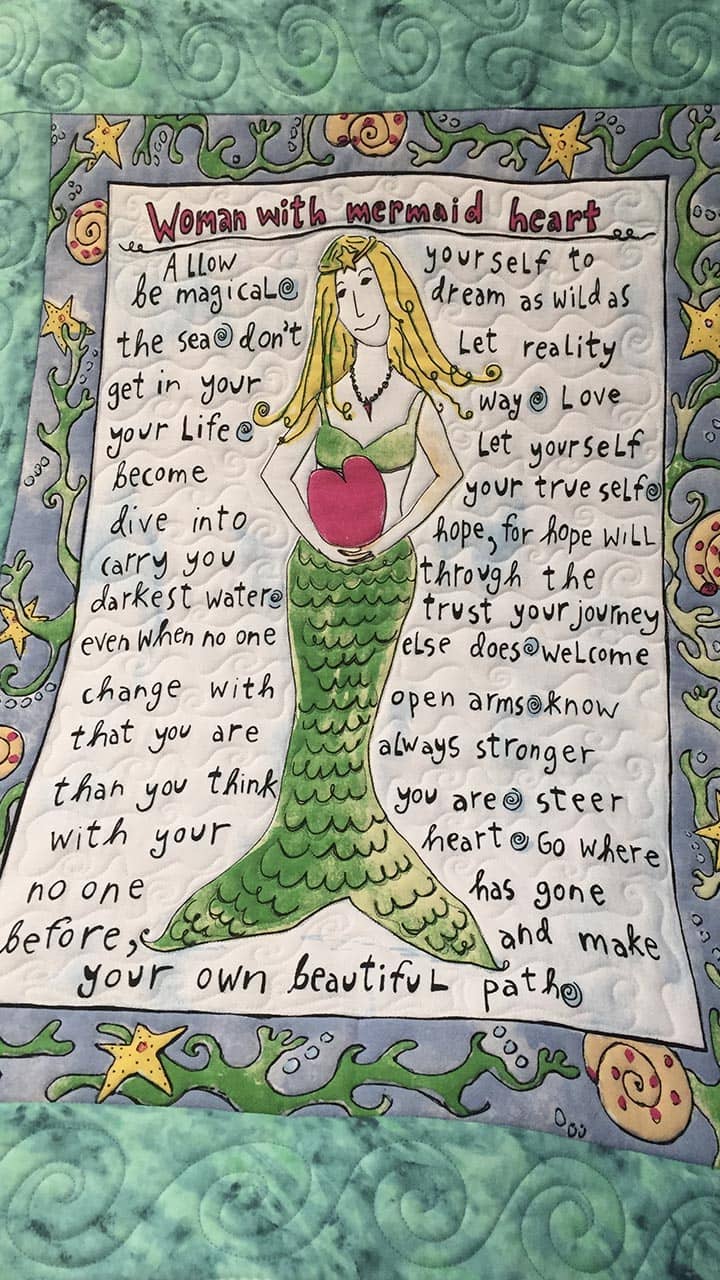 Woman with mermaid heart
Allow yourself to
be magical dream as wild as
the sea don't Let reality
get in your way Love
your Life Let yourself
Become your true self
dive into hope, for hope will
carry you through the
darkest water trust your journey
even when no one else does welcome
change with open arms know
that you are always stronger
than you think you are steer
with your heart Go where
no one has gone
before, and make
your own beautiful path